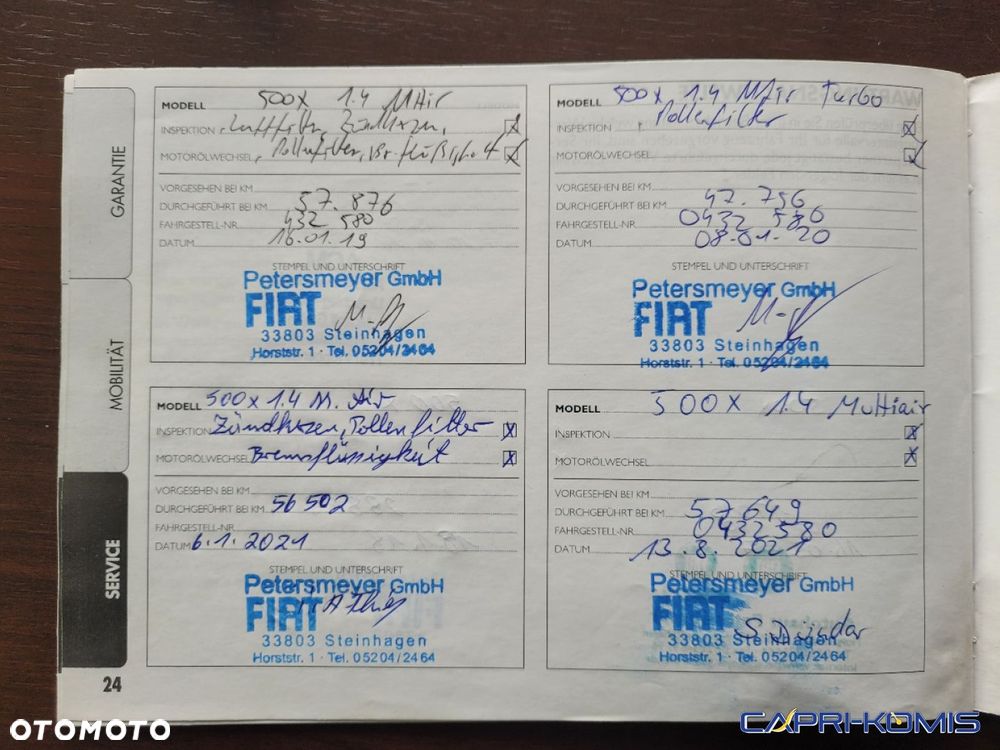 GARANTIE
MOBILITÄT
SERVICE
24
MODELL 500x 1.4 MAir
INSPEKTION Luftfilter, Zündkerzen,
MOTORÖLWECHSEL Pollenfilter,
VORGESEHEN BEI KM
DURCHGEFÜHRT BEI KM 57.876
FAHRGESTELL-NR. 432 580
DATUM 16.01.19
STEMPEL UND UNTERSCHRIFT
Petersmeyer GmbH
FIAT
33803 Steinhagen
Horststr. 1 · Tel. 05204/2464
MODELL 500x 1.4 MAir Turbo
INSPEKTION Pollenfilter
MOTORÖLWECHSEL
VORGESEHEN BEI KM
DURCHGEFÜHRT BEI KM 47.756
FAHRGESTELL-NR. 0432 580
DATUM 08.01.20
STEMPEL UND UNTERSCHRIFT
Petersmeyer GmbH
FIAT
33803 Steinhagen
Horststr. 1 · Tel. 05204/2464
MODELL 500x 1.4 M. Air
INSPEKTION Zündkerzen, Pollenfilter
MOTORÖLWECHSEL Bremsflüssigkeit
VORGESEHEN BEI KM
DURCHGEFÜHRT BEI KM 56 502
FAHRGESTELL-NR.
DATUM 6.1.2021
STEMPEL UND UNTERSCHRIFT
Petersmeyer GmbH
FIAT
33803 Steinhagen
Horststr. 1 · Tel. 05204/2464
MODELL 500X 1.4 Multiair
INSPEKTION
MOTORÖLWECHSEL
VORGESEHEN BEI KM
DURCHGEFÜHRT BEI KM 57649
FAHRGESTELL-NR. 0432580
DATUM 13.8.2021
STEMPEL UND UNTERSCHRIFT
Petersmeyer GmbH
FIAT
33803 Steinhagen
Horststr. 1 · Tel. 05204/2464
OTOMOTO
CAPRI-KOMIS